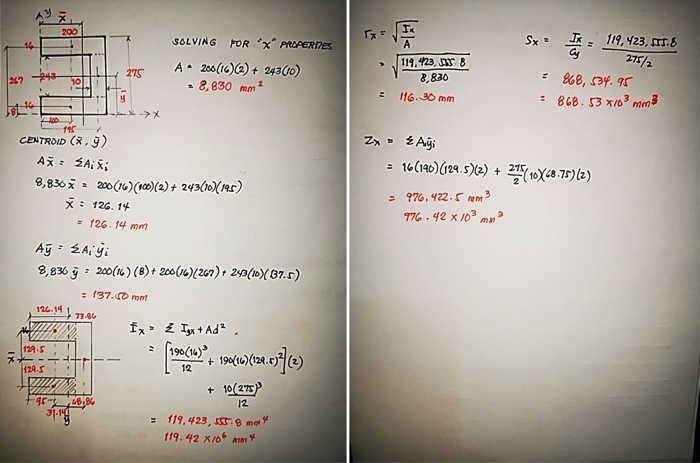 y
x̄
200
SOLVING FOR "X" PROPERTIES
16
A = 200(16)(2) + 243(10)
= 8,830 mm²
267
243
10
275
ȳ
8
16
x
100
195
CENTROID (x̄, ȳ)
Ax̄ = ΣAi x̄i
8,830 x̄ = 200(16)(100)(2) + 243(10)(195)
x̄ = 126.14
= 126.14 mm
Aȳ = ΣAi ȳi
8,830 ȳ = 200(16)(8) + 200(16)(267) + 243(10)(137.5)
= 137.50 mm
126.14
73.86
16
x̄
129.5
129.5
95
31.14
68.86
ȳ
Īx = Σ Igx + Ad²
= [190(16)³/12 + 190(16)(129.5)²](2)
+ 10(275)³/12
= 119,423,555.8 mm⁴
119.42 x10⁶ mm⁴
rx = √(Ix/A)
= √(119,423,555.8/8,830)
= 116.30 mm
Sx = Ix/Cy = 119,423,555.8/275/2
= 868,534.95
= 868.53 x10³ mm³
Zx = ΣAiȳi
= 16(190)(129.5)(2) + 275/2(10)(68.75)(2)
= 976,422.5 mm³
976.42 x10³ mm³